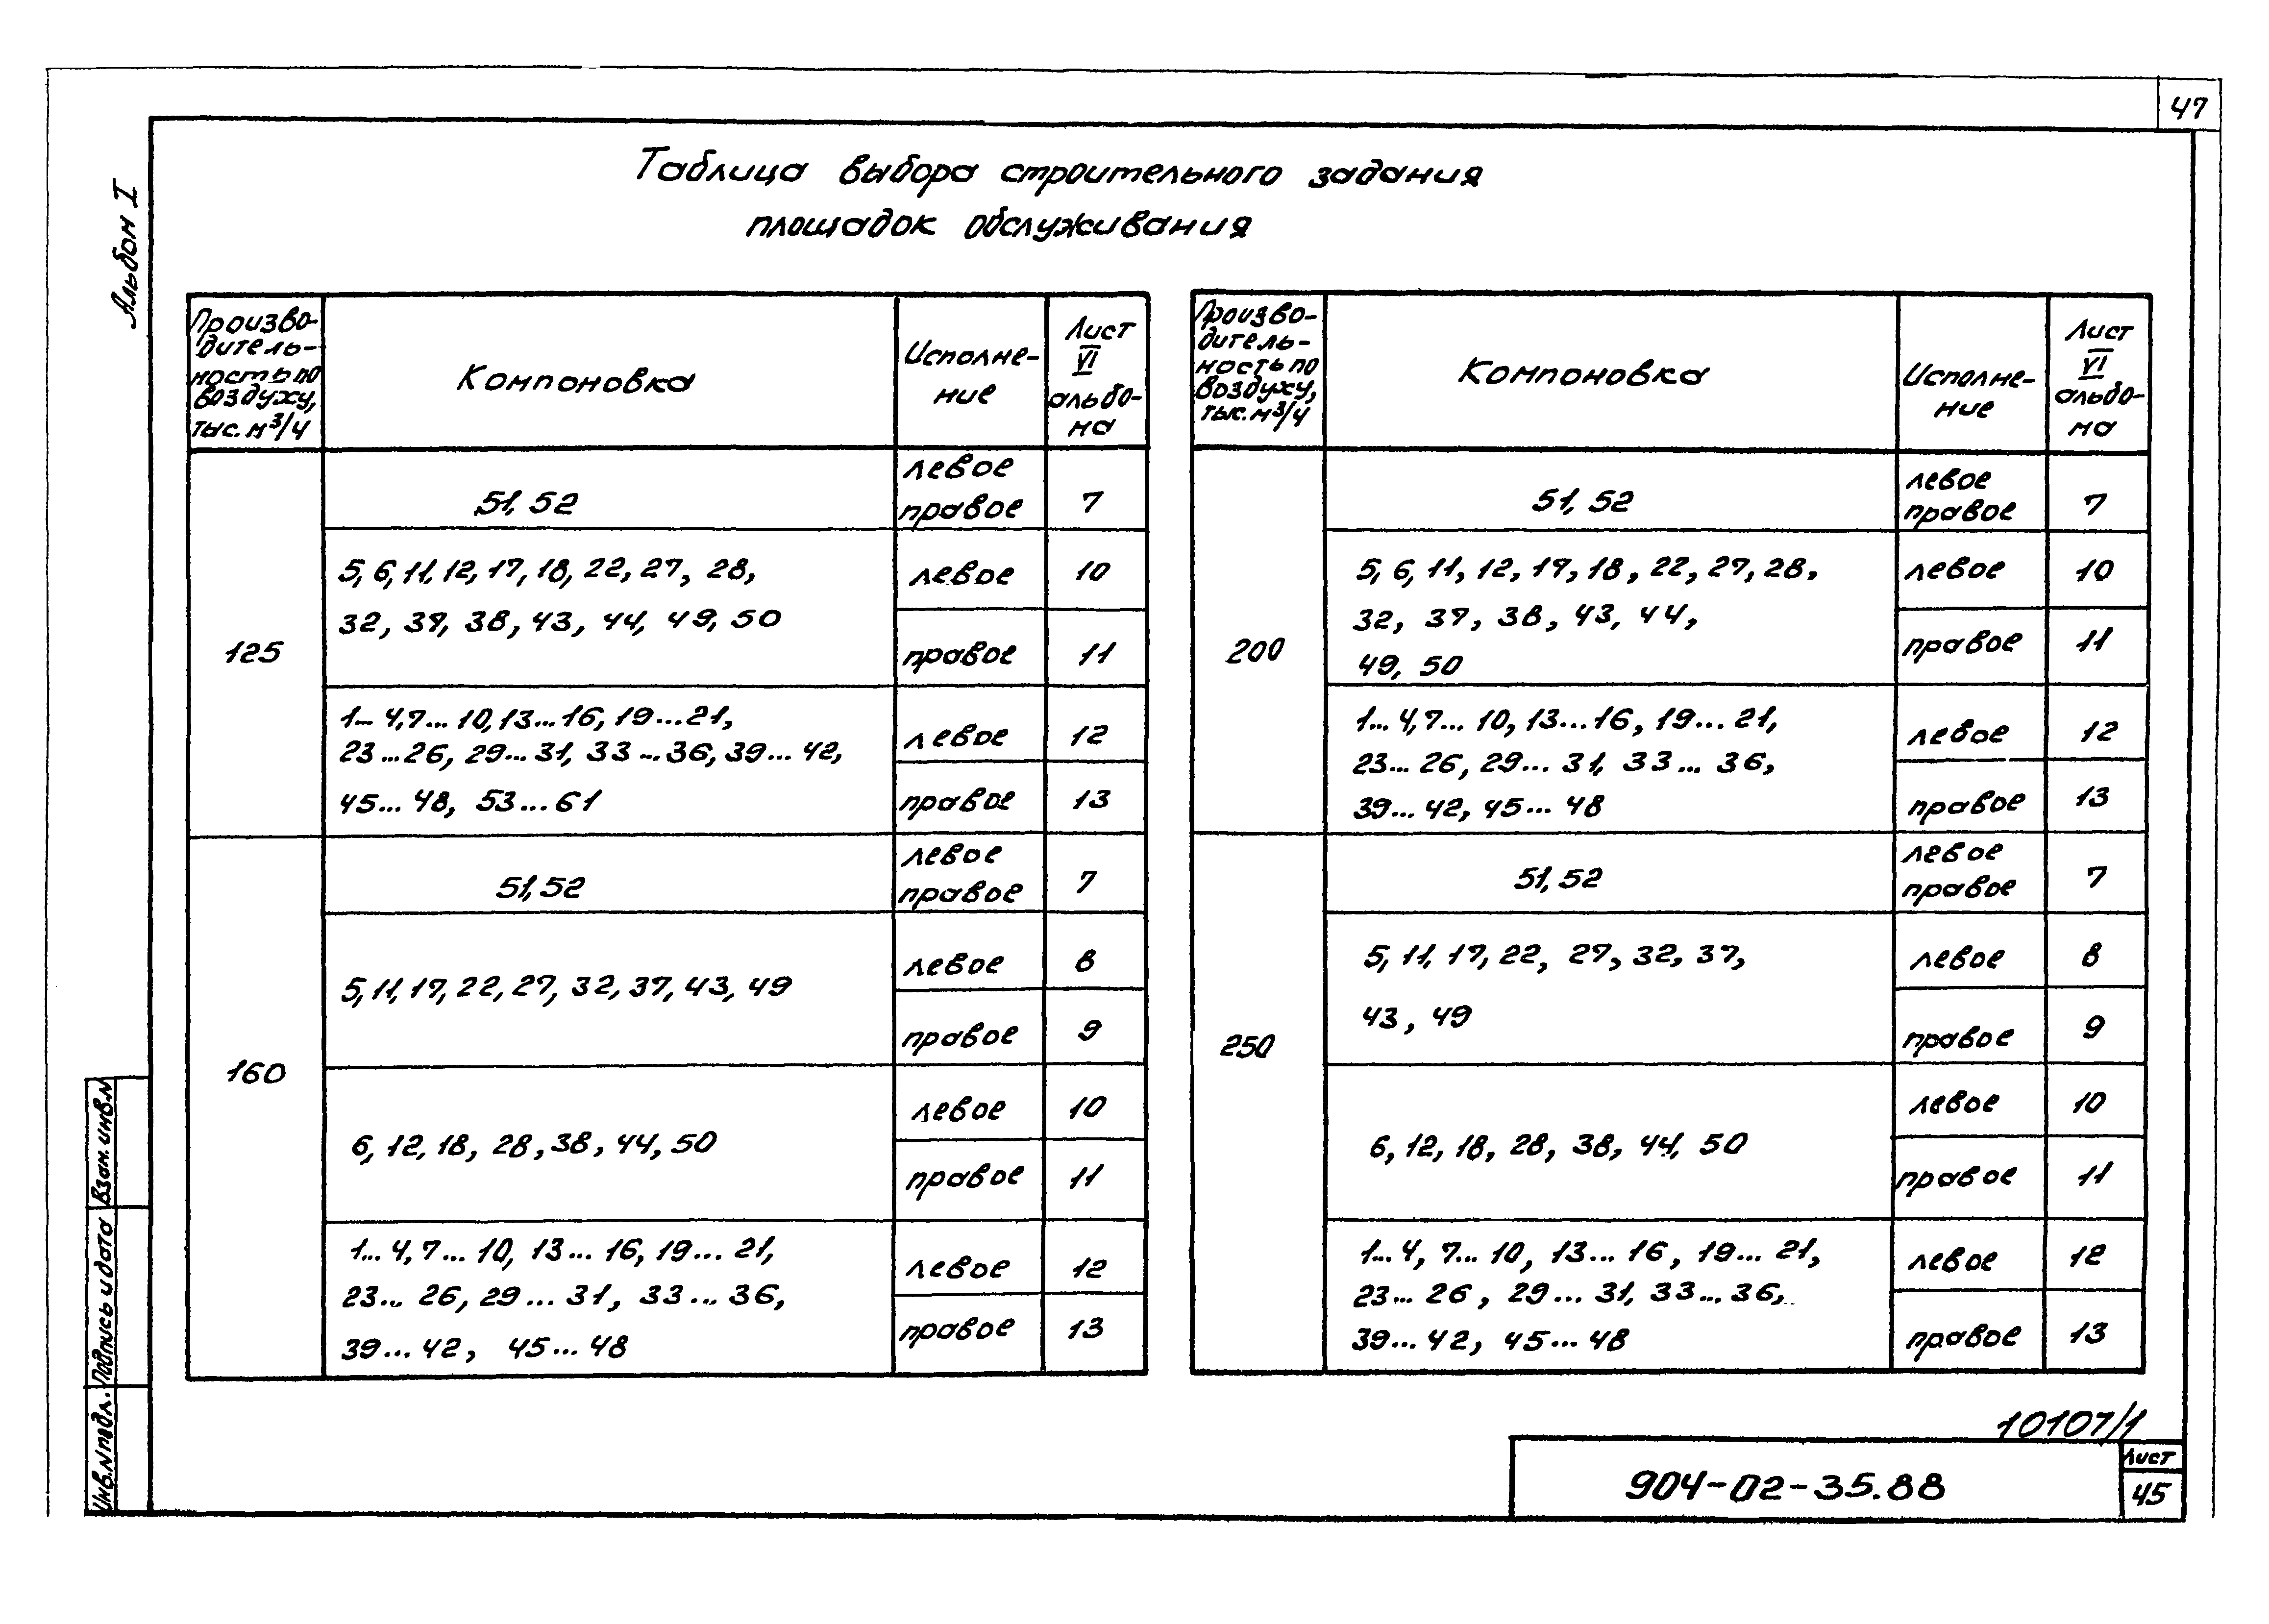 47
Альбом I
Таблица выбора строительного задания
площадок обслуживания
Произво-
дитель-
ность по
воздуху,
тыс. м³/ч
Компоновка
Исполне-
ние
Лист
VI
альбо-
ма
125
51, 52
левое
правое
7
5, 6, 11, 12, 17, 18, 22, 27, 28,
32, 37, 38, 43, 44, 49, 50
левое
10
правое
11
1... 4, 7... 10, 13... 16, 19... 21,
23... 26, 29... 31, 33... 36, 39... 42,
45... 48, 53... 61
левое
12
правое
13
160
51, 52
левое
правое
7
5, 11, 17, 22, 27, 32, 37, 43, 49
левое
8
правое
9
6, 12, 18, 28, 38, 44, 50
левое
10
правое
11
1... 4, 7... 10, 13... 16, 19... 21,
23... 26, 29... 31, 33... 36,
39... 42, 45... 48
левое
12
правое
13
Произво-
дитель-
ность по
воздуху,
тыс. м³/ч
Компоновка
Исполне-
ние
Лист
VI
альбо-
ма
200
51, 52
левое
правое
7
5, 6, 11, 12, 17, 18, 22, 27, 28,
32, 37, 38, 43, 44,
49, 50
левое
10
правое
11
1... 4, 7... 10, 13... 16, 19... 21,
23... 26, 29... 31, 33... 36,
39... 42, 45... 48
левое
12
правое
13
250
51, 52
левое
правое
7
5, 11, 17, 22, 27, 32, 37,
43, 49
левое
8
правое
9
6, 12, 18, 28, 38, 44, 50
левое
10
правое
11
1... 4, 7... 10, 13... 16, 19... 21,
23... 26, 29... 31, 33... 36,
39... 42, 45... 48
левое
12
правое
13
Взам. инв.N
Подпись и дата
Инв.N подл.
10107/1
904-02-35.88
Лист
45